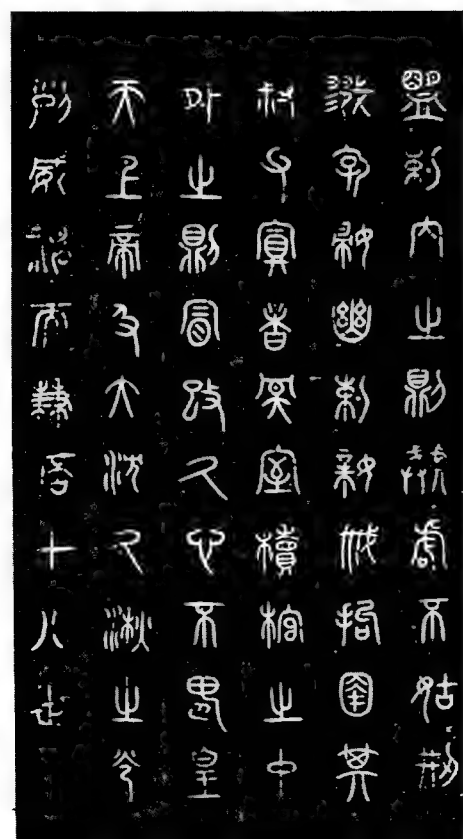 盟制內之則虣虐不姑刑
戮孕婦幽刺親戚拘圉其
叔父寘者冥室櫝棺之中
外之則冒改久心不畏皇
天上帝及大沈久湫之光
列威神而兼倍十八世